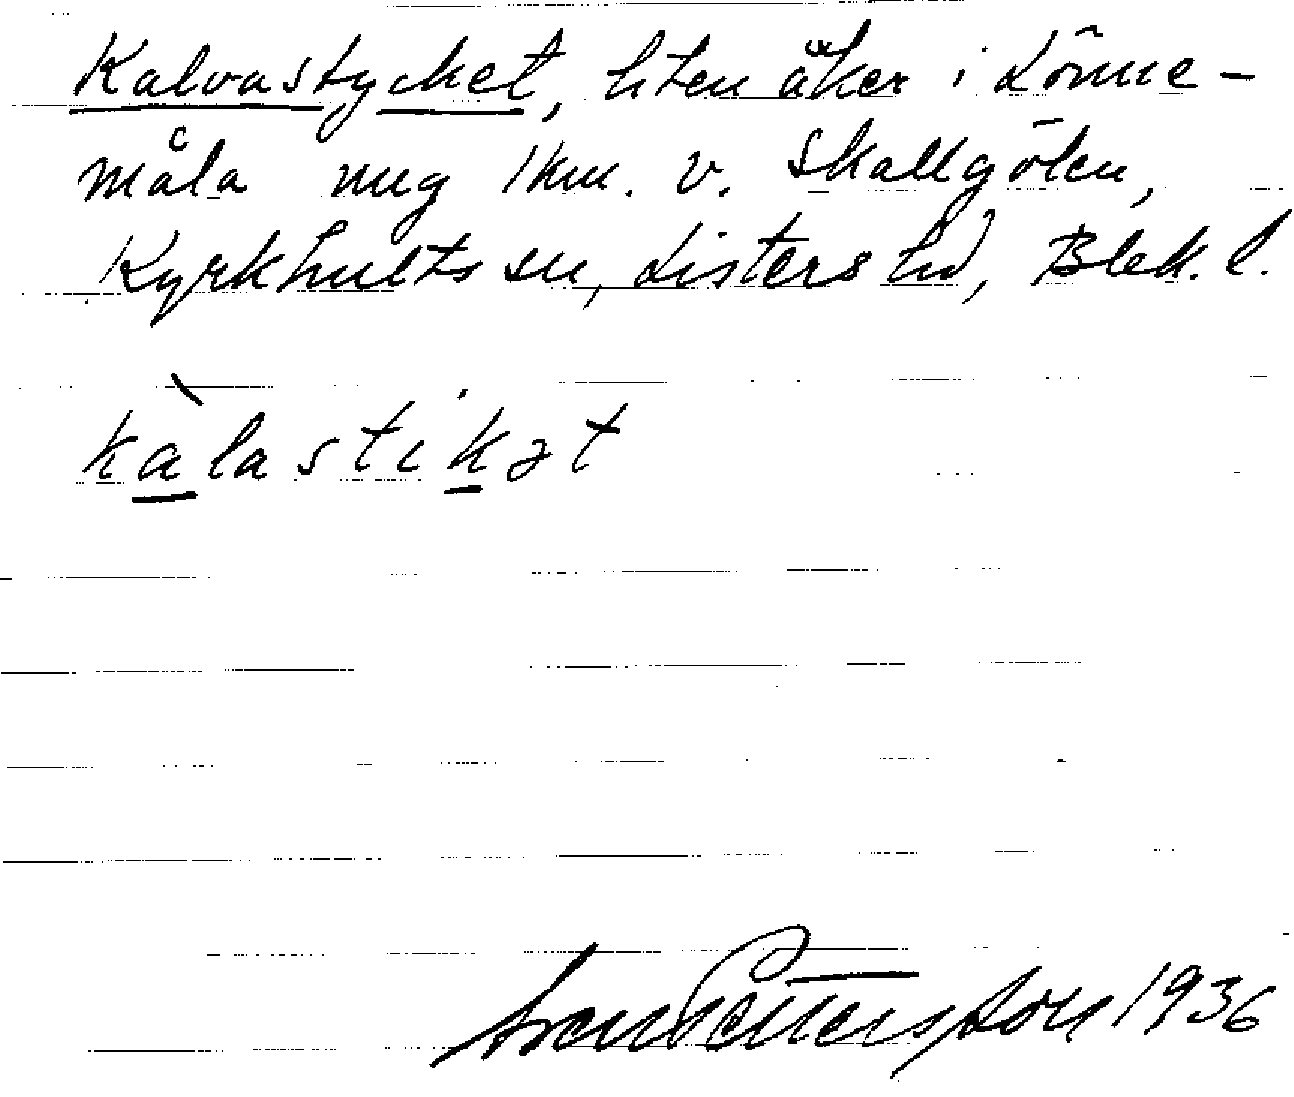 Kalvastycket, liten åker i Lönne-
måla nug 1 km. v. Skallgölen,
Kyrkhults sn, Listers hd, Blek. l.
kàlastikət
Sven Pettersson 1936